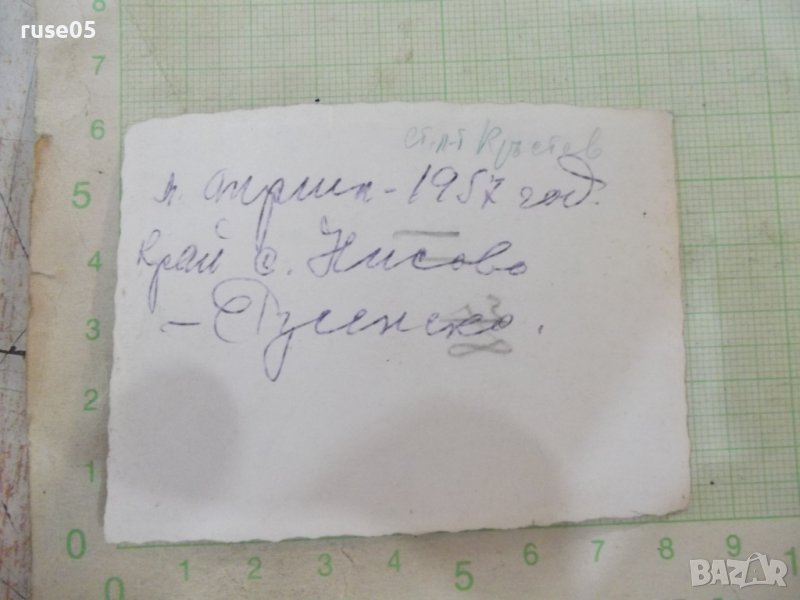 ruse05
ст. л-т Кръстев
м. април - 1957 год.
край с. Нисово
– Русенско.
8
7
6
5
4
3
2
1
0
0 1 2 3 4 5 6 7 8 9 1
BAZAR